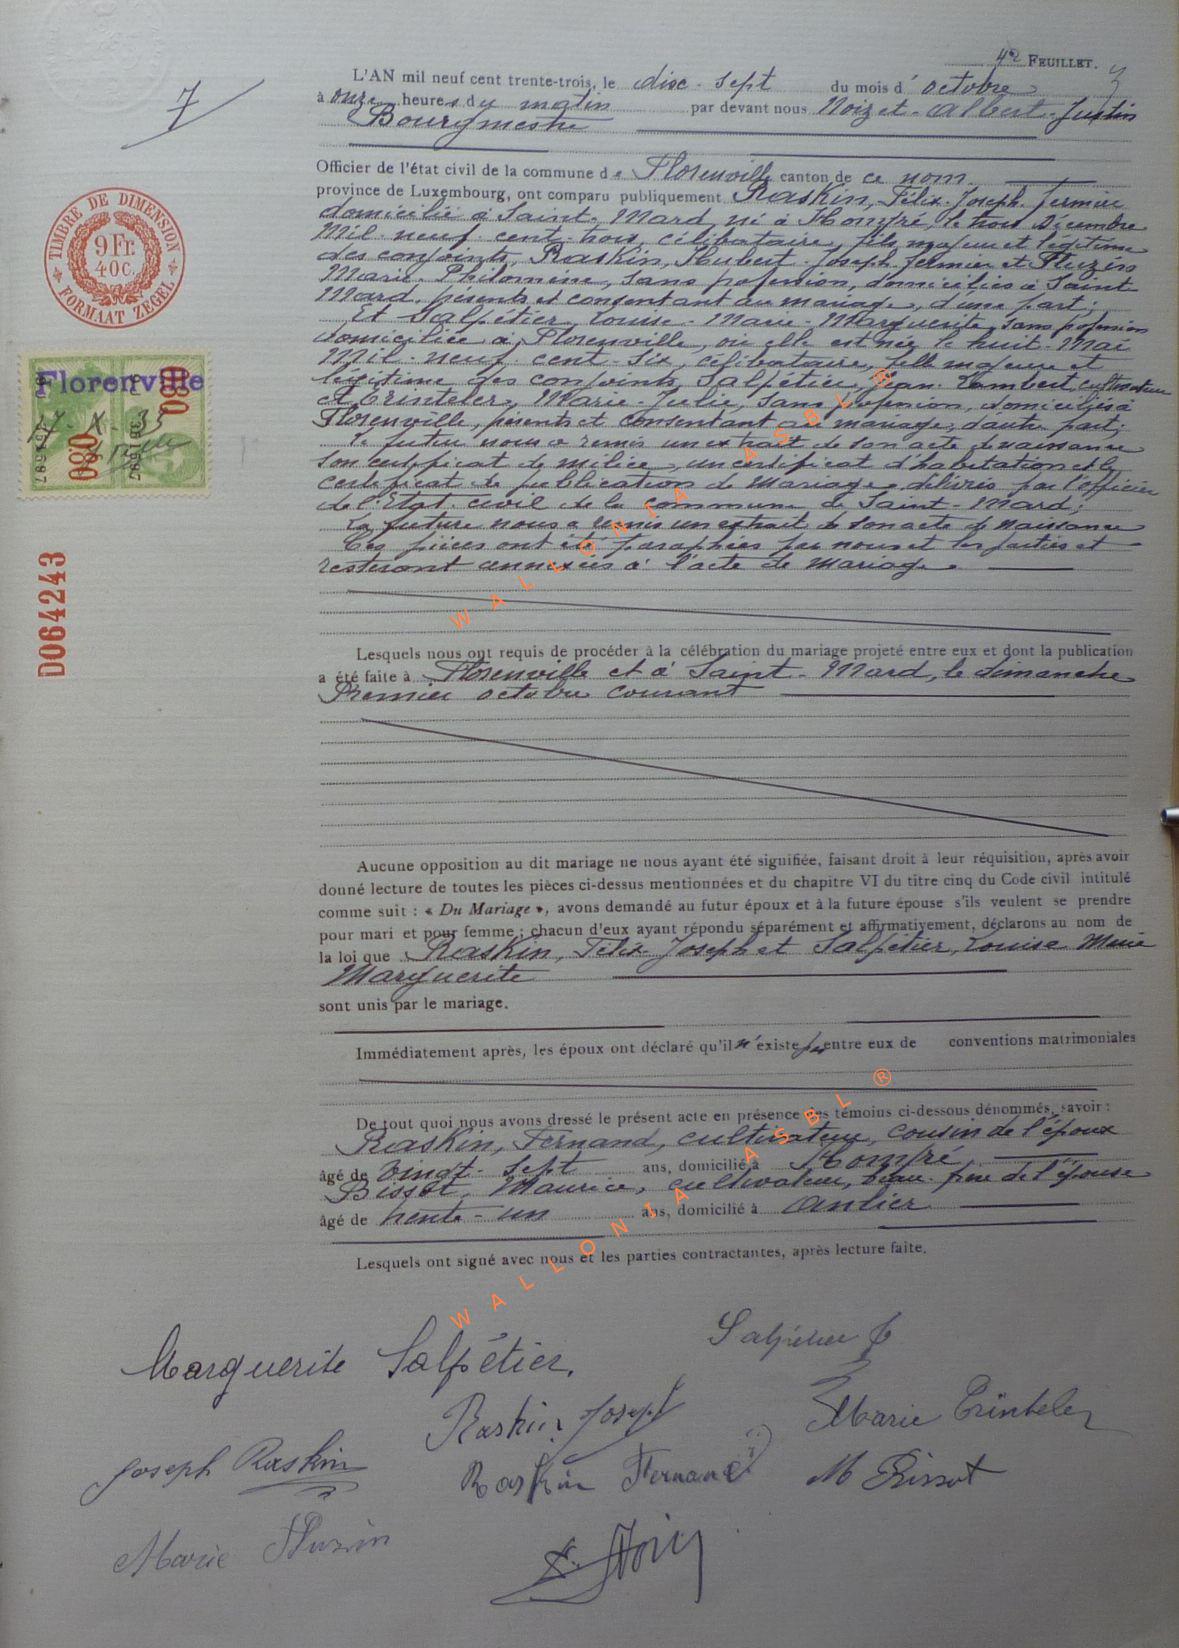 4e FEUILLET.
7
L'AN mil neuf cent trente-trois, le disc-sept du mois d'octobre
à onze heures du matin par devant nous Noizet-Albert-Justin
Bourgmestre
Officier de l'état civil de la commune de Florenville canton de ce nom
province de Luxembourg, ont comparu publiquement Raskin, Félix-Joseph, fermier
domicilié à Saint-Mard, né à Hompré, le trois Décembre
Mil-neuf-cent-trois, célibataire, fils majeur et légitime
des conjoints, Raskin, Hubert-Joseph, fermier et Fluzin
Marie-Philomène, sans profession, domiciliés à Saint
Mard, présents et consentant au mariage, d'une part;
Et Salpétier, Louise-Marie-Marguerite, sans profession
domiciliée à Florenville, où elle est née le huit-Mai
Mil-neuf-cent-six, célibataire, fille majeure et
légitime des conjoints, Salpétier, Jean-Lambert, cultivateur
et Trinteler, Marie-Julie, sans profession, domiciliés à
Florenville, présents et consentant au mariage, d'autre part;
Le futur nous a remis un extrait de son acte de naissance
son certificat de milice, un certificat d'habitation et le
certificat de publication de Mariage délivrés par l'officier
de l'Etat-civil de la commune de Saint-Mard;
La future nous a remis un extrait de son acte de naissance
Ces pièces ont été paraphées par nous et les parties et
resteront annexées à l'acte de mariage.
Lesquels nous ont requis de procéder à la célébration du mariage projeté entre eux et dont la publication
a été faite à Florenville et à Saint-Mard, le dimanche
Premier octobre courant
Aucune opposition au dit mariage ne nous ayant été signifiée, faisant droit à leur réquisition, après avoir
donné lecture de toutes les pièces ci-dessus mentionnées et du chapitre VI du titre cinq du Code civil intitulé
comme suit : « Du Mariage », avons demandé au futur époux et à la future épouse s'ils veulent se prendre
pour mari et pour femme ; chacun d'eux ayant répondu séparément et affirmativement, déclarons au nom de
la loi que Raskin, Félix-Joseph et Salpétier, Louise Marie
Marguerite
sont unis par le mariage.
Immédiatement après, les époux ont déclaré qu'il n'existe pas entre eux de conventions matrimoniales
De tout quoi nous avons dressé le présent acte en présence des témoins ci-dessous dénommés, savoir :
Raskin, Fernand, cultivateur, cousin de l'époux
âgé de vingt-sept ans, domicilié à Hompré,
Bissot, Maurice, cultivateur, beau-frère de l'épouse
âgé de trente-un ans, domicilié à Anlier
Lesquels ont signé avec nous et les parties contractantes, après lecture faite.
Marguerite Salpétier.
Salpétier
Raskin Joseph
Marie Trinteler
Joseph Raskin
Raskin Fernand
M Bissot
Marie Fluzin
TIMBRE DE DIMENSION
9 Fr.
40 C.
FORMAAT ZEGEL
Florenville
080
080
D064243
WALLONIA ASBL ®
WALLONIA ASBL ®